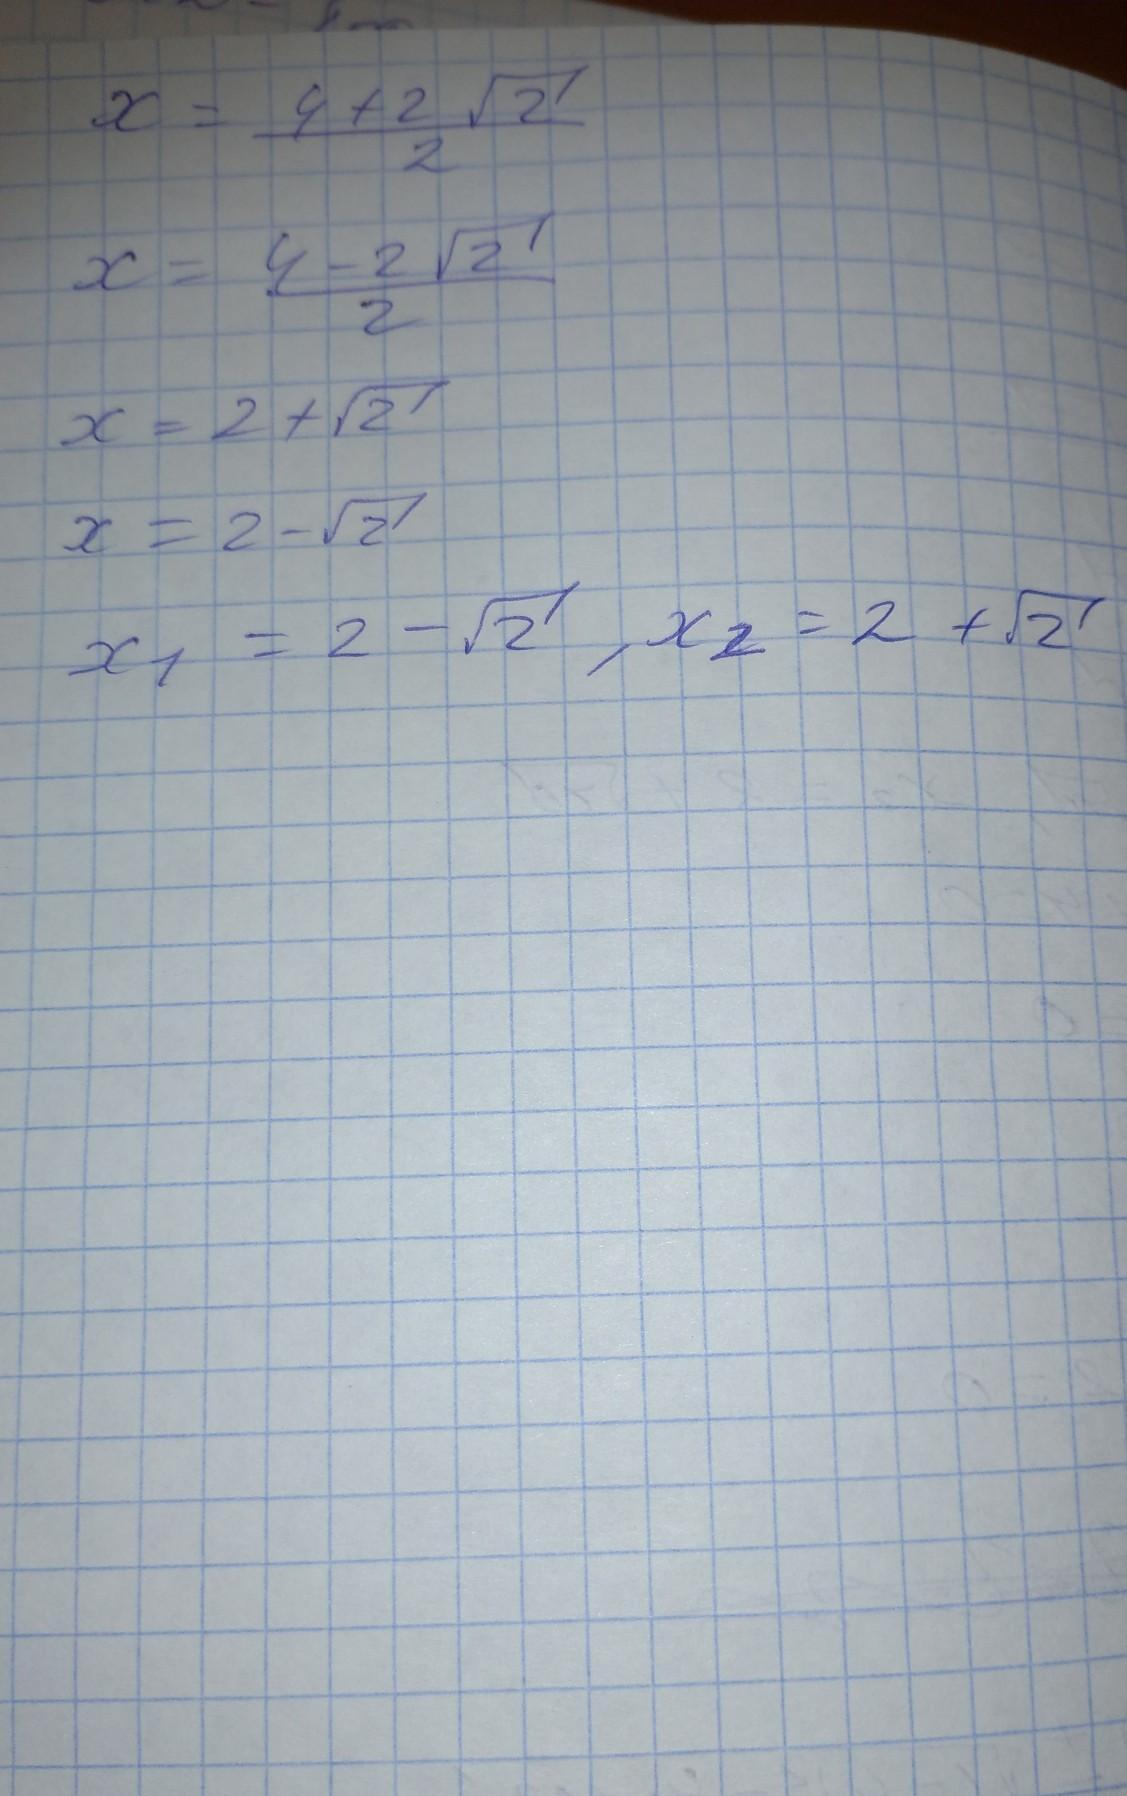 x = (4 + 2√2)/2
x = (4 - 2√2)/2
x = 2 + √2
x = 2 - √2
x₁ = 2 - √2, x₂ = 2 + √2